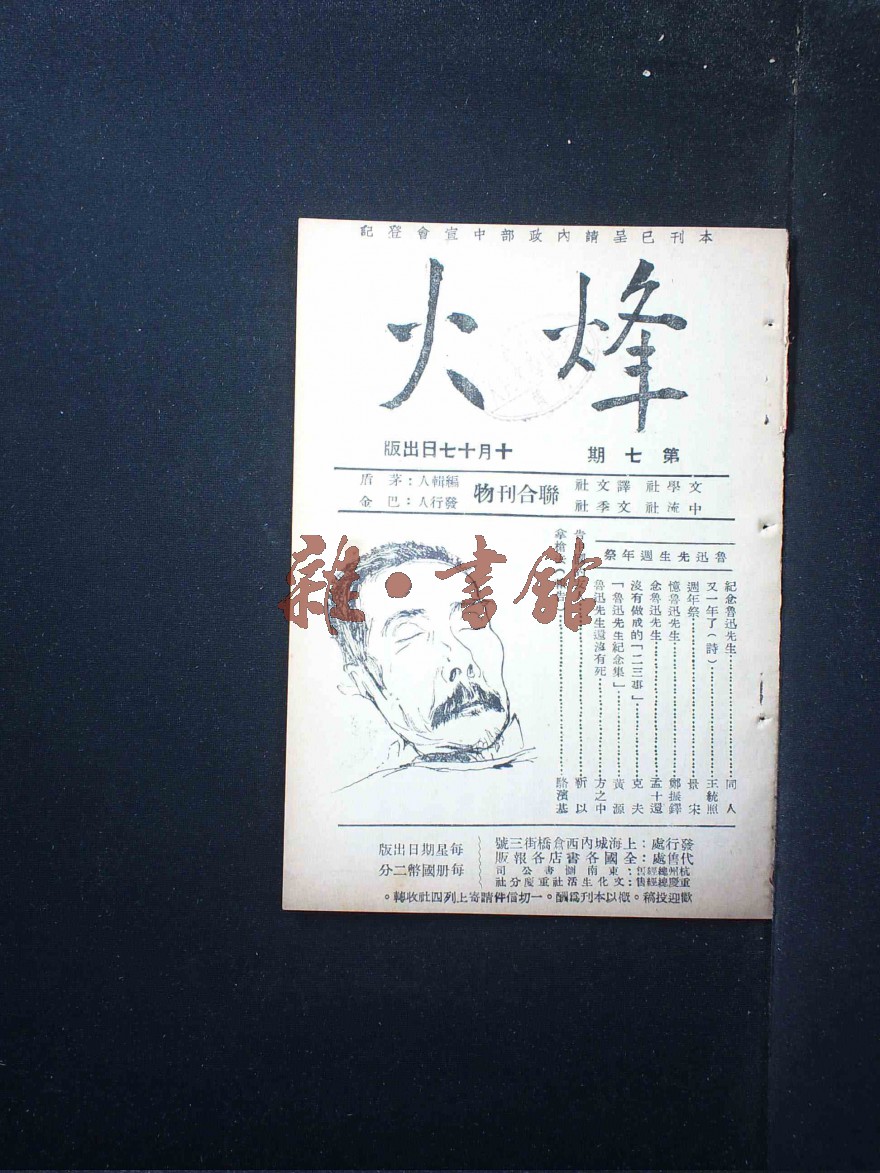 本刊已呈請內政部中宣會登記
烽火
第七期 十月十七日出版
文學社 譯文社
中流社 文季社
聯合刊物
編輯人：茅盾
發行人：巴金
魯迅先生週年祭
紀念魯迅先生……同人
又一年了（詩）……王統照
週年祭……景宋
憶魯迅先生……鄭振鐸
念魯迅先生……孟十還
沒有做成的「二三事」……克夫
「魯迅先生紀念集」……黃源
魯迅先生還沒有死……方之中
……靳以
拿槍去……駱濱基
發行處：上海城內西倉橋街三號
代售處：全國各書店各報販
杭州總經售：東南圖書公司
重慶總經售：文化生活社重慶分社
每星期日出版
每册國幣二分
歡迎投稿。概以本刊爲酬。一切信件請寄上列四社收轉。
雜·書館